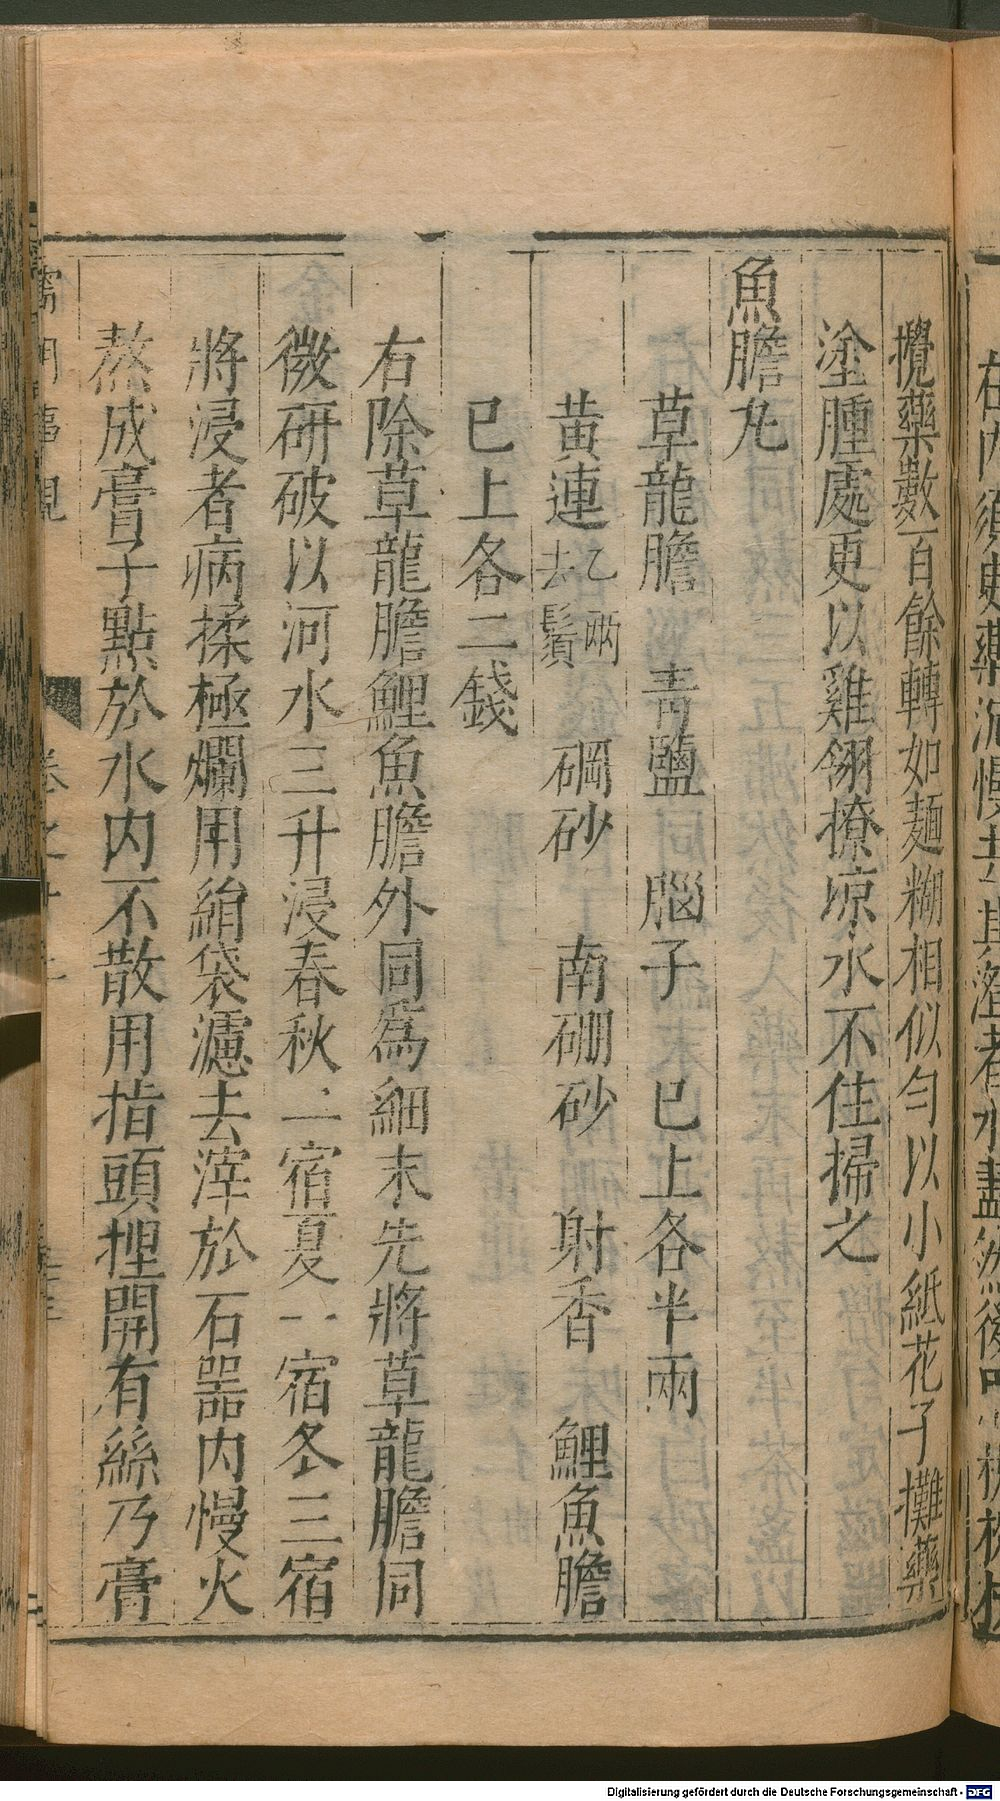 攪藥數百餘轉如麺糊相似勻以小紙花子攤藥
塗腫處更以雞翎撩涼水不住掃之
魚膽丸
草龍膽 青鹽 腦子 已上各半兩
黃連 乙兩去鬚 硇砂 南硼砂 射香 鯉魚膽
已上各二錢
右除草龍膽鯉魚膽外同爲細末先將草龍膽同
微研破以河水三升浸春秋二宿夏一宿冬三宿
將浸者病揉極爛用絹袋濾去滓於石噐內慢火
熬成膏子點於水內不散用指頭捏開有絲乃膏
Digitalisierung gefördert durch die Deutsche Forschungsgemeinschaft - DFG